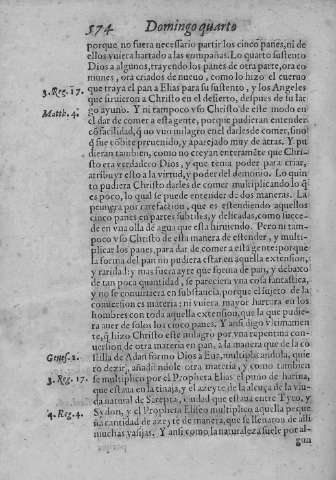 574 Domingo quarto
porque no fuera necessario partir los cinco panes, ni de
ellos vuiera hartado a las compañas. Lo quarto sustento
Dios a algunos, trayendo los panes de otra parte, ora co
munes, ora criados de nueuo, como lo hizo el cueruo
3. Reg. 17. que traya el pan a Elias para su sustento, y los Angeles
que siruieron a Christo en el desierto, despues de su lar
Matth. 4. go ayuno. Y ni tampoco vso Christo de este modo en
el dar de comer a esta gente, porque pudieran entender
cõ facilidad, q̃ no vuo milagro en el darles de comer, sino
q̃ fue cõbite preuenido, y aparejado muy de atras. Y pu
dieran tambien, como no creyan enteramẽte que Chri-
sto era verdadero Dios, y que tenia poder para criar,
atribuyr esto a la virtud, y poder del demonio. Lo quin
to pudiera Christo darles de comer multiplicando lo q̃
es poco, lo qual se puede entender de dos maneras. La
primera por rarefaction, que es estendiendo aquellos
cinco panes en partes subtiles, y delicadas, como succe-
de en vna olla de agua que esta hiruiendo. Pero ni tam-
poco vso Christo de esta manera de estender, y multi-
plicar los panes, para dar de comer a esta gente: porque
la forma del pan no pudiera estar en aquella extension,
y raridad: y mas fuera ayre que forma de pan, y debaxo
de tan poca quantidad, se pareciera vna cosa fantastica,
y no se conuirtiera en substancia, porque el sujeto de la
conuersion es materia: ni vuiera mayor hartura en los
hombres con toda aquella extension, que la que pudie-
ra auer de solos los cinco panes. Y ansi digo vltimamen
te, q̃ hizo Christo este milagro por vna repentina con-
uersion de otra materia en pan, a la manera que de la co
Genes. 2. stilla de Adan formo Dios a Eua, multiplicandola, quie
ro dezir, añadiendole otra materia, y como tambien
3. Reg. 17. se multiplico por el Propheta Elias el puño de harina,
que estaua en la tinaja, y el azeyte de la alcuça de la viu-
da natural de Sarepta, ciudad que estaua entre Tyro, y
4. Reg. 4. Sydon, y el Propheta Eliseo multiplico aquella peque
ña cantidad de azeyte de manera, que se llenaron de alli
muchas vasijas. Y ansi como la naturaleza suele por al-
gun